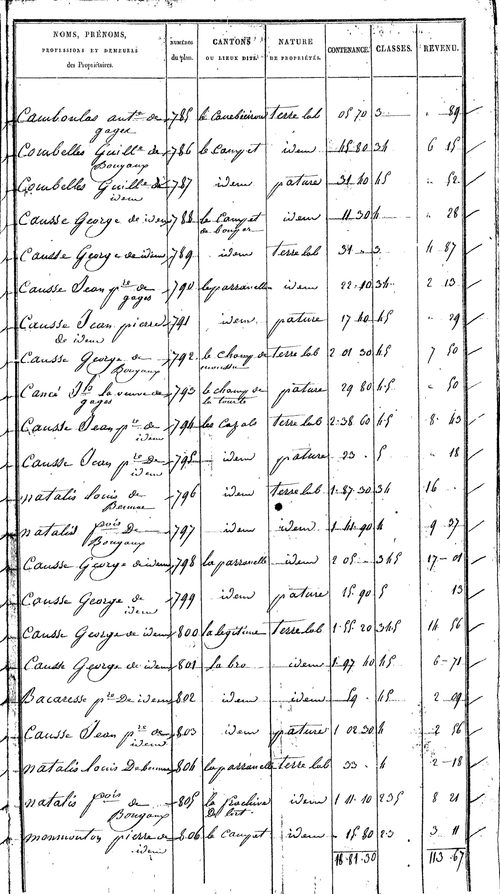 NOMS, PRÉNOMS,
PROFESSIONS ET DEMEURES
des Propriétaires.
NUMÉROS
du plan.
CANTONS
OU LIEUX DITS.
NATURE
DE PROPRIÉTÉS.
CONTENANCE.
CLASSES.
REVENU.
Camboulas ant.ne de gages 785 le terre lab 05 70 3 " 89
Combelles Guill.e de Bouyoux 786 le Campet idem 45 80 34 6 15
Combelles Guill.e de idem 787 idem pature 31 40 45 " 52
Causse George de idem 788 le Campet de idem 11 30 4 " 28
Causse George de idem 789 idem terre lab 31 " 3 4 87
Causse Jean p.re de gages 790 la parranelle idem 22 10 34 2 13
Causse Jean pierre de idem 791 idem pature 17 40 45 " 29
Causse George de Bouyoux 792 le champ de terre lab 2 01 30 45 7 50
Cancé la veuve de gages 793 le champ de la pature 29 80 45 " 50
Causse Jean p.re de idem 794 les Cazals terre lab 2 38 60 45 8 43
Causse Jean p.re De idem 795 idem pature 23 " 5 " 18
natalis Louis de 796 idem terre lab 1 87 30 34 16
natalis pois De Bouyoux 797 idem idem 1 41 90 4 9 37
Causse George de idem 798 la parranelle idem 2 05 " 345 17 01
Causse George de idem 799 idem pature 15 90 5 13
Causse George de idem 800 la legitime terre lab 1 55 20 345 14 56
Causse George de idem 801 la bro idem 1 97 40 45 6 71
Bacaresse p.re De idem 802 idem idem 59 " 45 2 09
Causse Jean p.re de idem 803 idem pature 1 02 30 4 2 56
natalis Louis De 804 la parranelle terre lab 33 " 4 2 18
natalis pois de Bouyoux 805 la idem 1 11 10 235 8 21
pierre de idem 806 le Campet idem 15 80 23 3 11
18 81 30 113 67